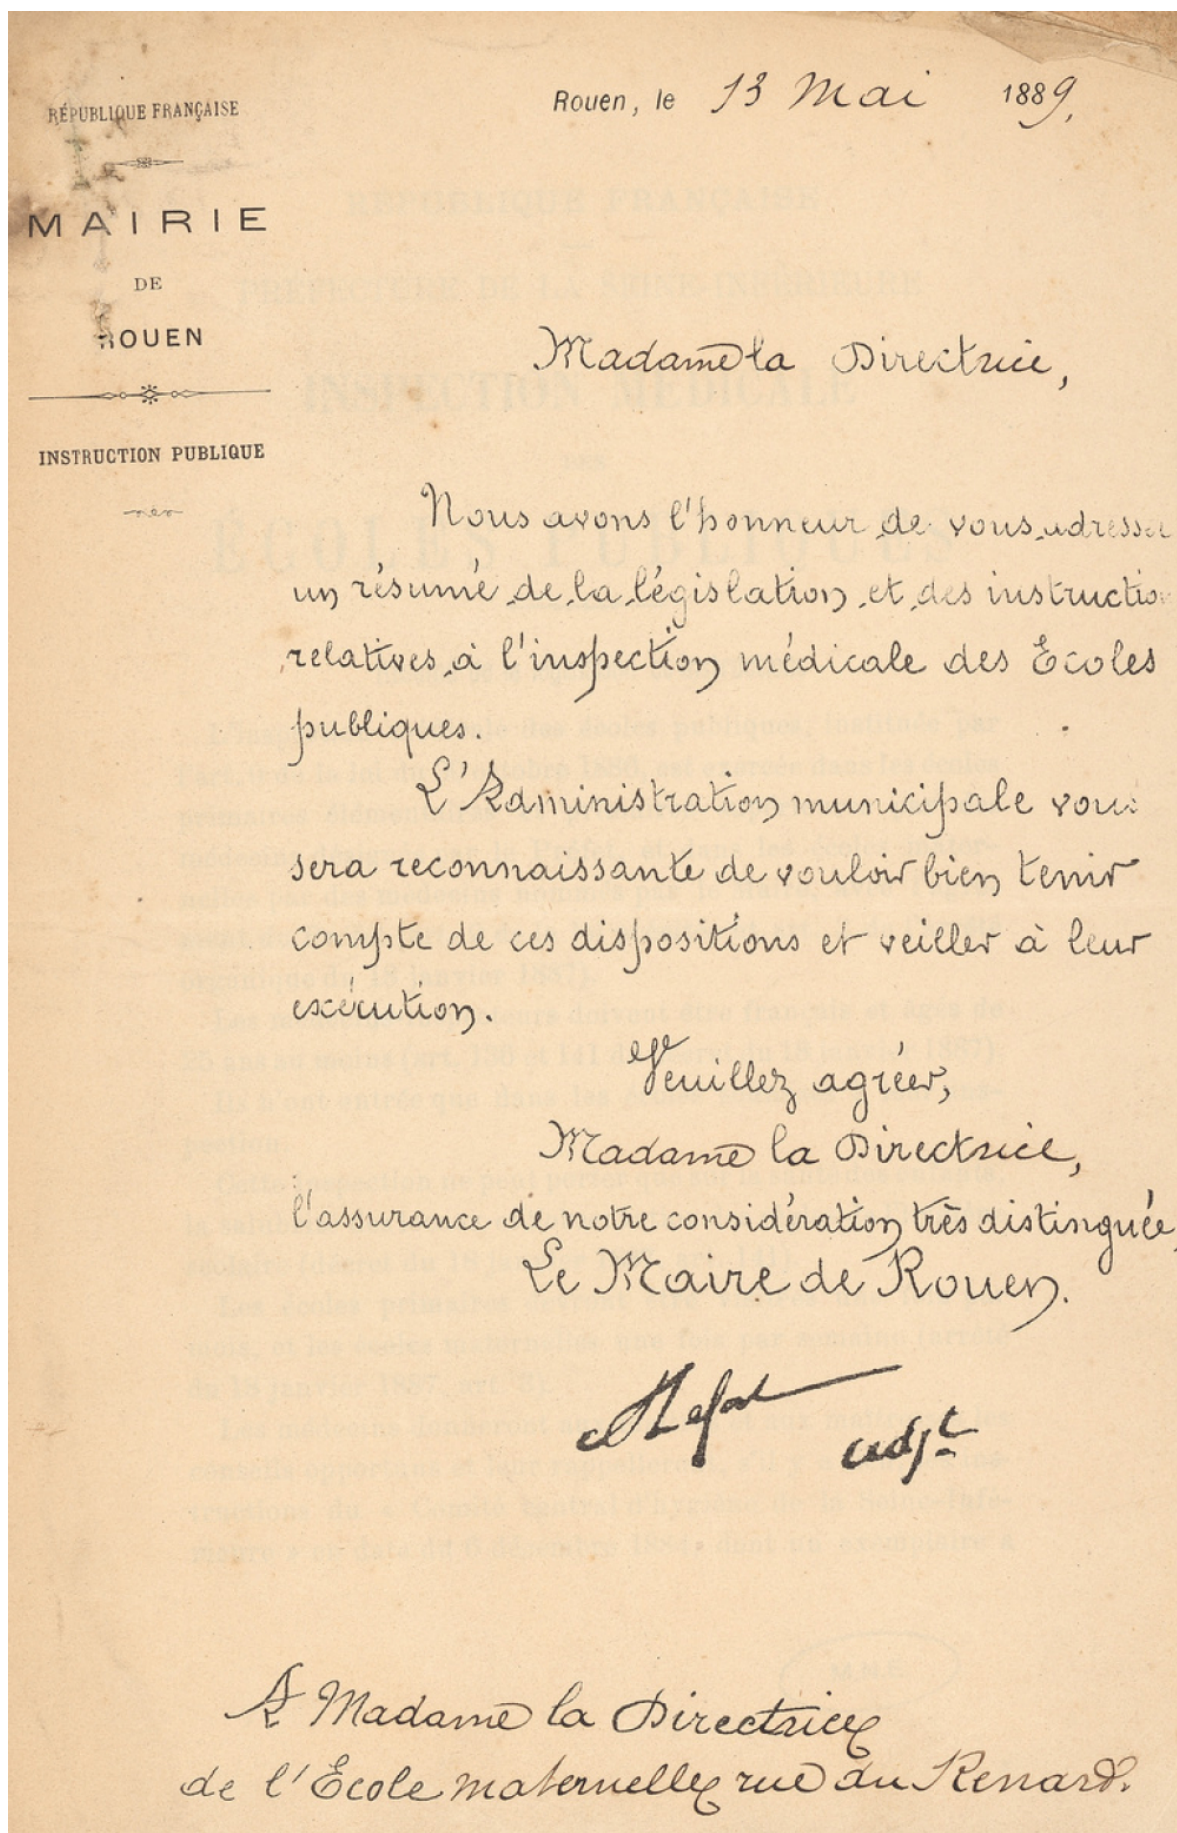 RÉPUBLIQUE FRANÇAISE
MAIRIE
DE
ROUEN
INSTRUCTION PUBLIQUE
Rouen, le 13 Mai 1889.
Madame la Directrice,
Nous avons l'honneur de vous adresser
un résumé de la législation et des instructions
relatives à l'inspection médicale des Ecoles
publiques.
L'Administration municipale vous
sera reconnaissante de vouloir bien tenir
compte de ces dispositions et veiller à leur
exécution.
Veuillez agréer,
Madame la Directrice,
l'assurance de notre considération très distinguée,
Le Maire de Rouen.
adjt
A Madame la Directrice
de l'Ecole maternelle rue du Renard.